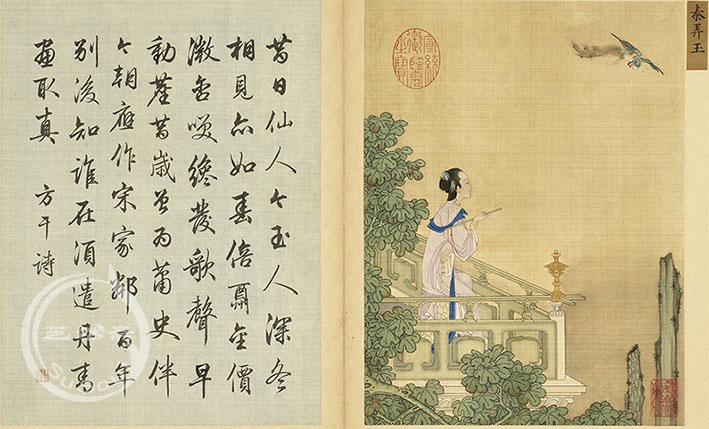 秦弄玉
宣統御覽之寶
昔日仙人今玉人深冬
相見亦如春倍酬金價
微含笑纔發歌聲早
動塵昔歲曾為蕭史伴
今朝應作宋家鄰百年
別後知誰在須遣丹青
畫取真 方干詩